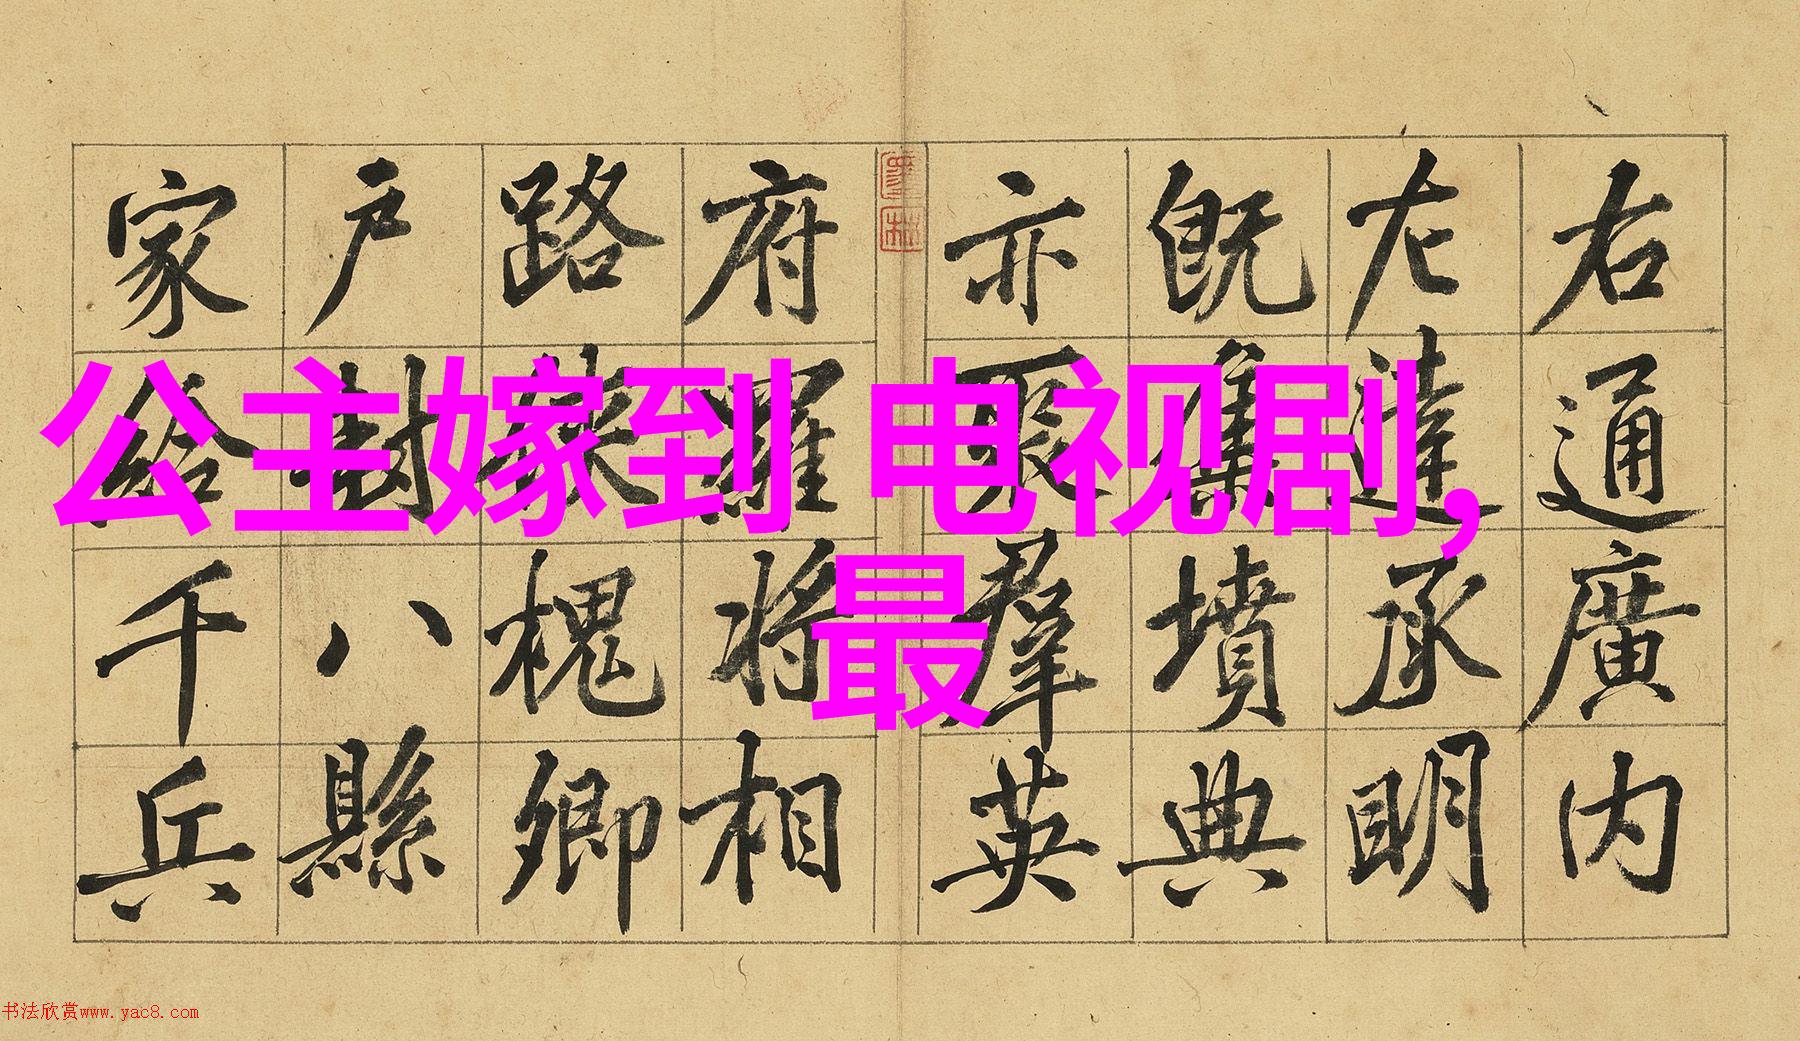 右通廣內
左達承明
既集墳典
亦聚羣英
府羅將相
路槐卿
戶封八縣
家給千兵
公主嫁到 电视剧,
最
书法欣赏www.yac8.com